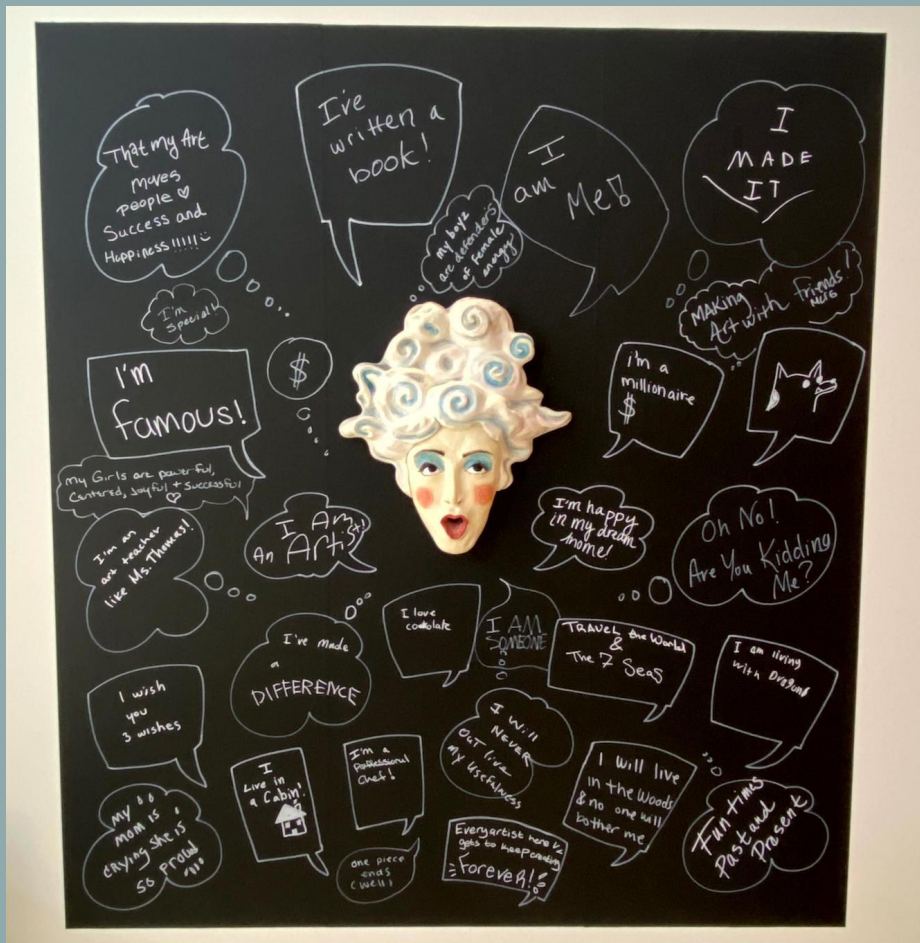 That my Art
moves
people ♡
Success and
Happiness!!!!!
I've
written a
book!
my boyz
are defenders
of female
energy
I
am Me!
I
MADE
IT
I'm
Special!
MAKING
Art with friends!
I'm
famous!
$
i'm a
millionaire
$
my Girls are powerful,
Centered, Joyful + Successful
♡
I'm an
art teacher
like Ms. Thomas!
I Am
An Artist
I'm happy
in my dream
home!
Oh No!
Are You Kidding
Me?
I've made
a
DIFFERENCE
I love
I AM
SOMEONE
TRAVEL the World
&
The 7 Seas
I am living
with Dragons
I wish
you
3 wishes
I
Live in
a Cabin!
I'm a
Professional
Chef!
I Will
NEVER
Out live
my Usefulness
I will live
in the Woods
& no one will
bother me
my
mom is
crying she is
so proud
one piece
ends
(well)
Every artist here
gets to keep creating
Forever!
Fun times
Past and
Present